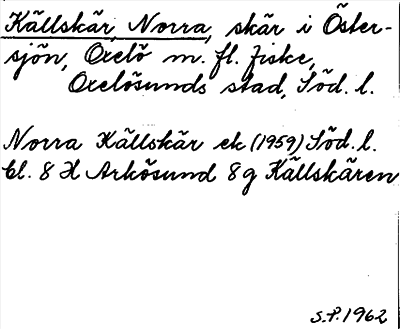 Källskär, Norra, skär i Öster-
sjön, Oxelö m. fl. fiske,
Oxelösunds stad, Söd. l.
Norra Källskär ek (1959) Söd. l.
bl. 8 H Arkösund 8g Källskären
S.P. 1962